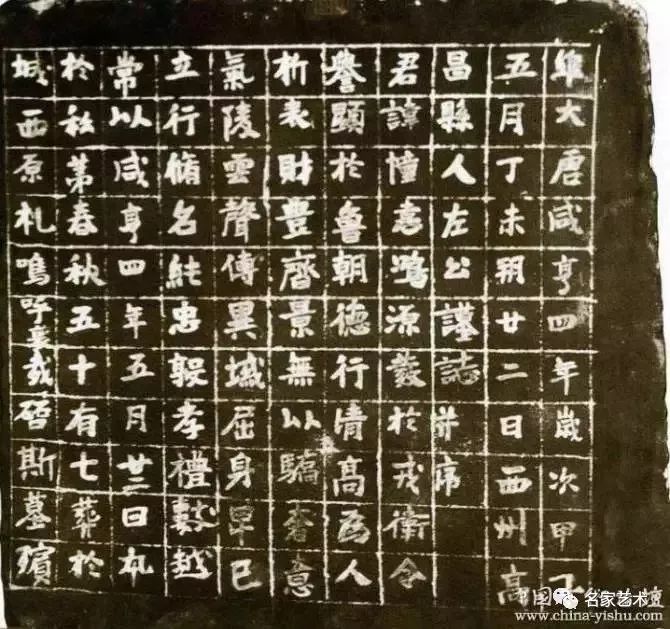 維大唐咸亨四年歲次甲
五月丁未朔廿二日西州高
昌縣人左公謹誌并序
君諱憧憙鴻源發於戎衛令
譽顯於魯朝德行清高為人
析表財豊齊景無以驕奢意
氣陵雲聲傳異域屈身早已
立行脩名純忠敦孝禮數越
常以咸亨四年五月廿二日卒
於私第春秋五十有七葬於
城西原札嗚呼哀哉啓斯墓殯
名家艺术
www.china-yishu.com